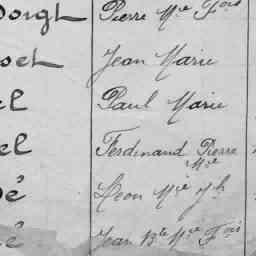 oigt Pierre Mie Fois
oet Jean Marie
el Paul Marie
el Ferdinand Pierre
Mie
é Leon Mie Jh
é Jean Bte Mie Fois